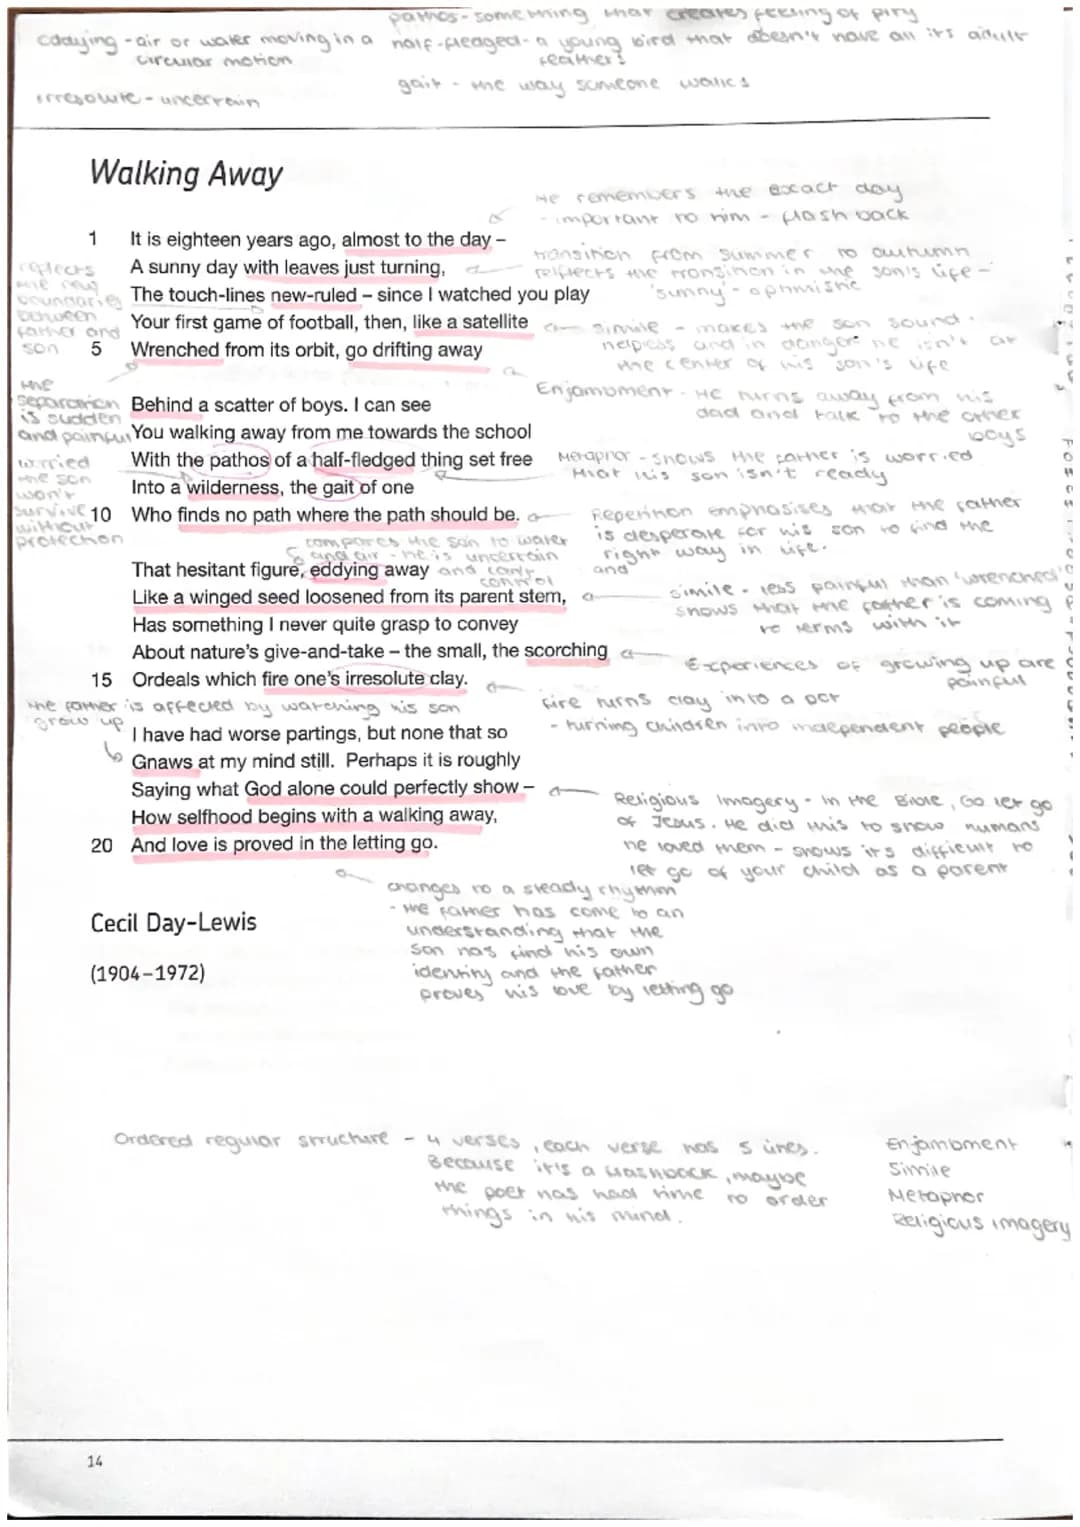 pathos - something that creates feeling of pity
eddying - air or water moving in a circular motion
half-fledged - a young bird that doesn't have all its adult feathers
gait - the way someone walks
irresolute - uncertain
Walking Away
He remembers the exact day
- important to him - flash back
1 It is eighteen years ago, almost to the day –
A sunny day with leaves just turning,
The touch-lines new-ruled – since I watched you play
Your first game of football, then, like a satellite
5 Wrenched from its orbit, go drifting away
reflects
the new
boundaries
between
father and
son
transition from summer to autumn
reflects the transition in the son's life -
'sunny' - optimistic
simile - makes the son sound
helpless and in danger he isn't at
the center of his son's life
the
separation
is sudden
and painful
Enjambment - He turns away from his
dad and talk to the other
boys
Behind a scatter of boys. I can see
You walking away from me towards the school
With the pathos of a half-fledged thing set free
Into a wilderness, the gait of one
10 Who finds no path where the path should be.
worried
the son
won't
survive
without
protection
Metaphor - shows the father is worried
that his son isn't ready
Repetition emphasises that the father
is desperate for his son to find the
right way in life.
and
compares the son to water
and air - he is uncertain
and can't
control
That hesitant figure, eddying away
Like a winged seed loosened from its parent stem,
Has something I never quite grasp to convey
About nature's give-and-take – the small, the scorching
15 Ordeals which fire one's irresolute clay.
simile - less painful than 'wrenched'
shows that the father is coming
to terms with it
Experiences of growing up are
painful
fire turns clay into a pot
- turning children into independent people
the father is affected by watching his son
grow up
I have had worse partings, but none that so
Gnaws at my mind still. Perhaps it is roughly
Saying what God alone could perfectly show –
How selfhood begins with a walking away,
20 And love is proved in the letting go.
Religious Imagery - in the Bible, Go let go
of Jesus. He did this to show humans
he loved them - shows it's difficult to
let go of your child as a parent
changes to a steady rhythm
- the father has come to an
understanding that the
son has find his own
identity and the father
proves his love by letting go
Cecil Day-Lewis
(1904–1972)
Ordered regular structure - 4 verses, each verse has 5 lines.
Because it's a flashback, maybe
the poet has had time to order
things in his mind.
Enjambment
Simile
Metaphor
Religious imagery
14